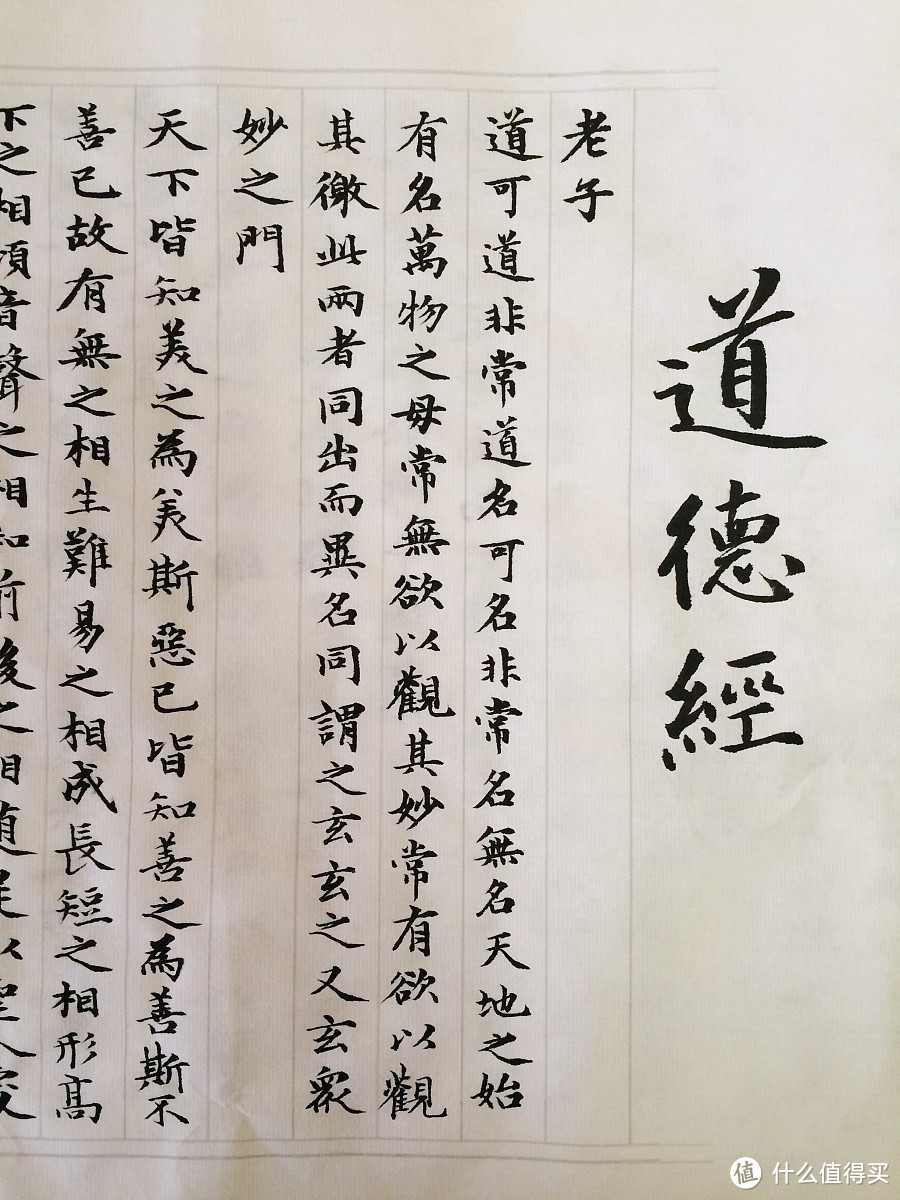 道德經
老子
道可道非常道名可名非常名無名天地之始
有名萬物之母常無欲以觀其妙常有欲以觀
其徼此兩者同出而異名同謂之玄玄之又玄眾
妙之門
天下皆知美之為美斯惡已皆知善之為善斯不
善已故有無之相生難易之相成長短之相形高
下之相傾音聲之相和前後之相隨是以聖人
值 什么值得买